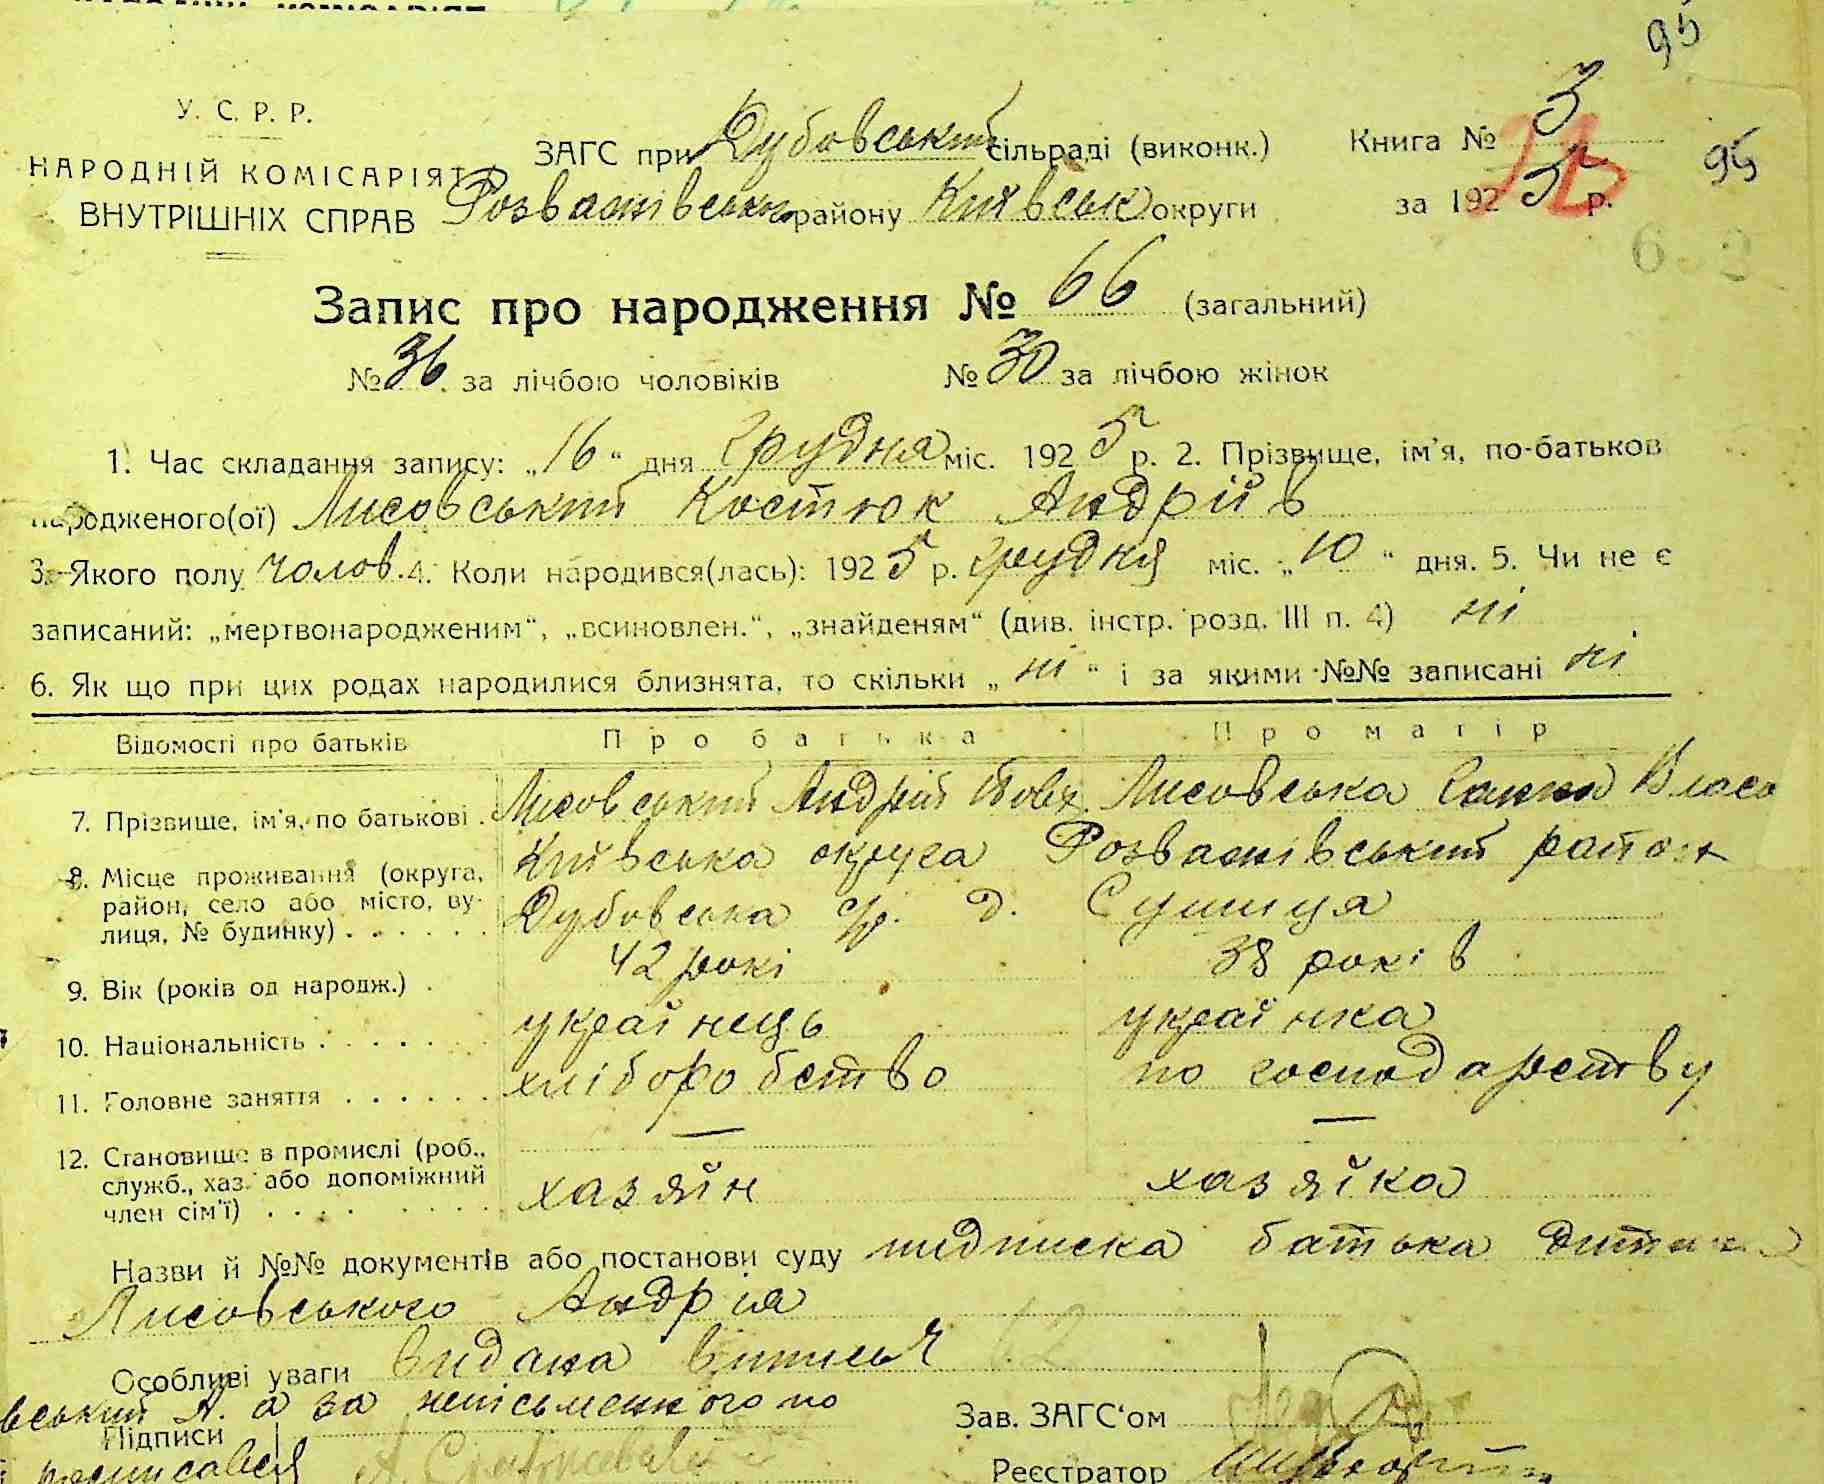 95
У. С. Р. Р.
НАРОДНІЙ КОМІСАРІЯТ
ВНУТРІШНІХ СПРАВ
ЗАГС при Дубовський сільраді (виконк.)
Розважівськ району Київськ округи
Книга № 3
за 1925 р.
95
Запис про народження № 66 (загальний)
№ 36 за лічбою чоловіків № 30 за лічбою жінок
1. Час складання запису: „16“ дня Грудня міс. 1925 р. 2. Прізвище, ім'я, по-батьков
народженого(ої) Лисовський Костюк Андріїв
3. Якого полу чолов. 4. Коли народився(лась): 1925 р. грудня міс. „10“ дня. 5. Чи не є
записаний: „мертвонародженим“, „всиновлен.“, „знайденям“ (див. інстр. розд. III п. 4) ні
6. Як що при цих родах народилися близнята, то скільки „ні“ і за якими №№ записані ні
Відомості про батьків Про батька Про матір
7. Прізвище, ім'я, по батькові Лисовський Андрій Лисовська Власо
8. Місце проживання (округа, район, село або місто, вулиця, № будинку) Київська округа Розважівський район
Дубовська с/р. д. Сушиця
9. Вік (років од народж.) 42 рокі 38 років
10. Національність украінець украінка
11. Головне заняття хліборобство по господарству
12. Становище в промислі (роб., — —
служб., хаз. або допоміжний
член сім'ї) хазяін хазяіка
Назви й №№ документів або постанови суду підписка батька
Лисовського Андрія
Особливі уваги Видана випись
вський А. а за неписьменного по
Підписи
росписався
Зав. ЗАГС'ом
Реєстратор